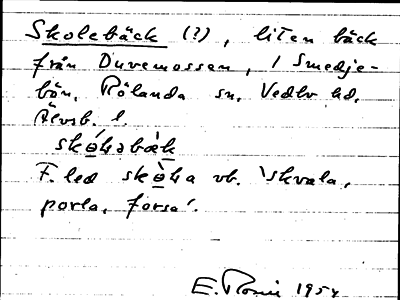 Skolebäck (?), liten bäck
från Duvemossen, i Smedje-
bön, Rölanda sn, Vedbo hd,
Älvsb. l.
skó̲həbàk
F. led skò̲ha vb. 'skvala,
porla, forsa'.
E. Rosin 1954